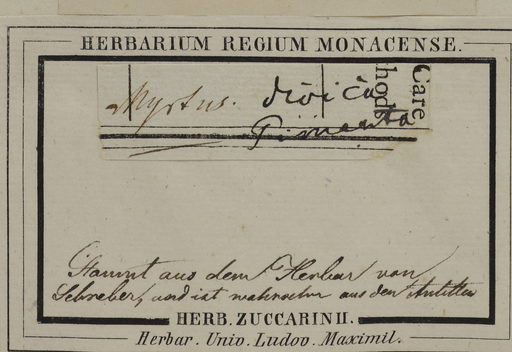 HERBARIUM REGIUM MONACENSE.
Myrtus. dioica
Pimenta
Care
hod
Stammt aus dem Herbar von
Schreber, und ist wahrschn aus den Antillen
HERB. ZUCCARINII.
Herbar. Univ. Ludov. Maximil.